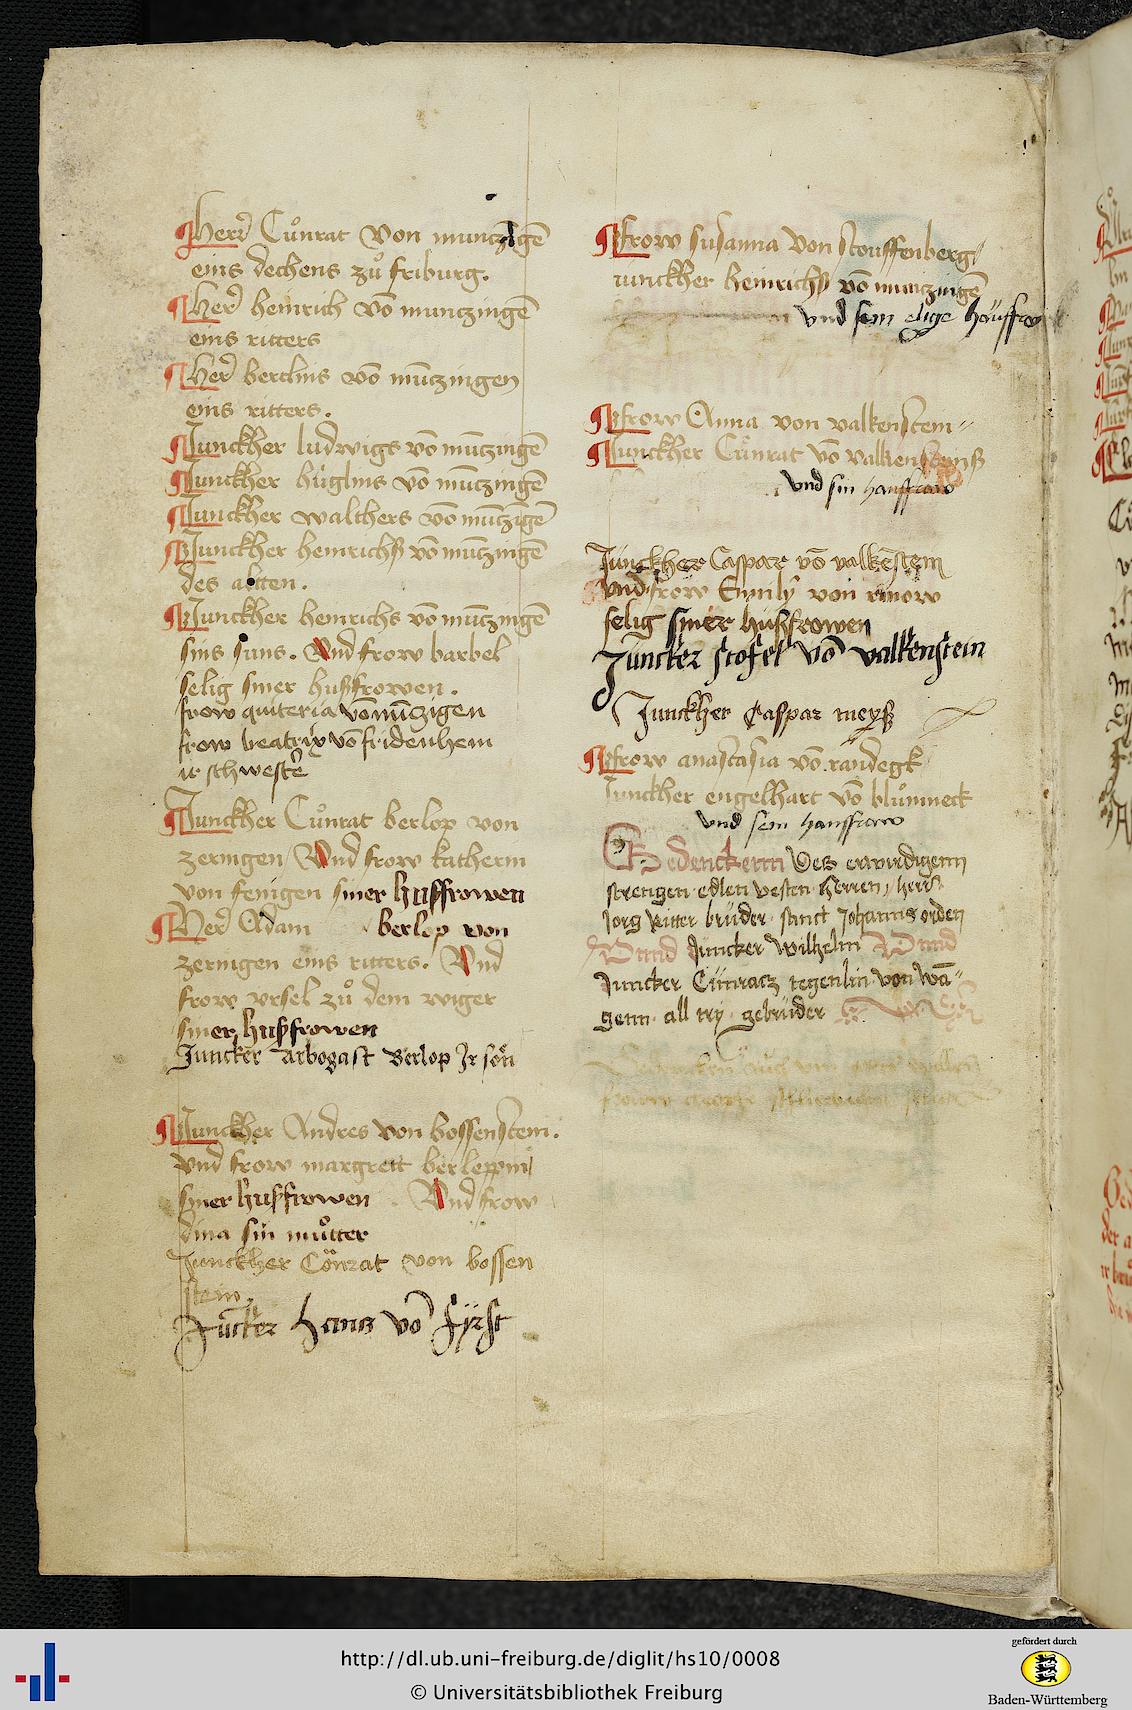 Herr Cůnrat von muntzigē
eins dechens zů friburg.
Her heinrich vō muntzingē
eins ritters
Her berchtis vō mūtzingen
eins ritters.
Junckher ludwigs vō mūtzingē
Junckher hüglins vō mūtzingē
Junckher walthers vō mūtzīgē
Junckher heinrichs vō mūtzingē
des altten.
Junckher heinrichs vō mūtzingē
sins suns. Und frow barbel
selig siner hußfrowen.
frow quiteria vō mūtzigen
frow beatrix vō fridenhein
ir schwestē
Junckher Cůnrat berlop von
zeringen Und frow katherin
von senigen siner hussfrowen
Her Adam berlop von
zeringen eins ritters. Und
frow ursel zů dem wiger
siner hußfrowen
Juncker Arbogast Berlop Ir sön
Junckher Andres von bossenstein.
und frow margrett berleppin
siner hußfrowen. Und frow
dina sin můtter
Junckher Cönrat von bossen
stein.
Jūcker Hans vō Fÿrst
frow susanna von stouffenberg
iunckher heinrichß vō muntzingē
vnd sein elige haüsfrow
frow Anna von valkenstein
Junckher Cůnrat vō valkensteinß
vnd sin hausfraw
Junckher Caspar vō valkēstein
vnd frow von rinow
selig siner hußfrowen
Juncker stofel vō valkenstein
Junckher Caspar meyß
frow anastasia vō randegk
Junckher engelhart vō blůmneck
vnd sein hausfraw
Gedenckenn Der erwirdigenn
strengen edlen vesten herren, herr
Jorg Ritter brüder sanct Johanns orden
Vnnd Juncker Wilhelm Vnnd
Juncker Cünratz tegenlin von wā
genn all try gebrüder
http://dl.ub.uni-freiburg.de/diglit/hs10/0008
© Universitätsbibliothek Freiburg
gefördert durch
Baden-Württemberg